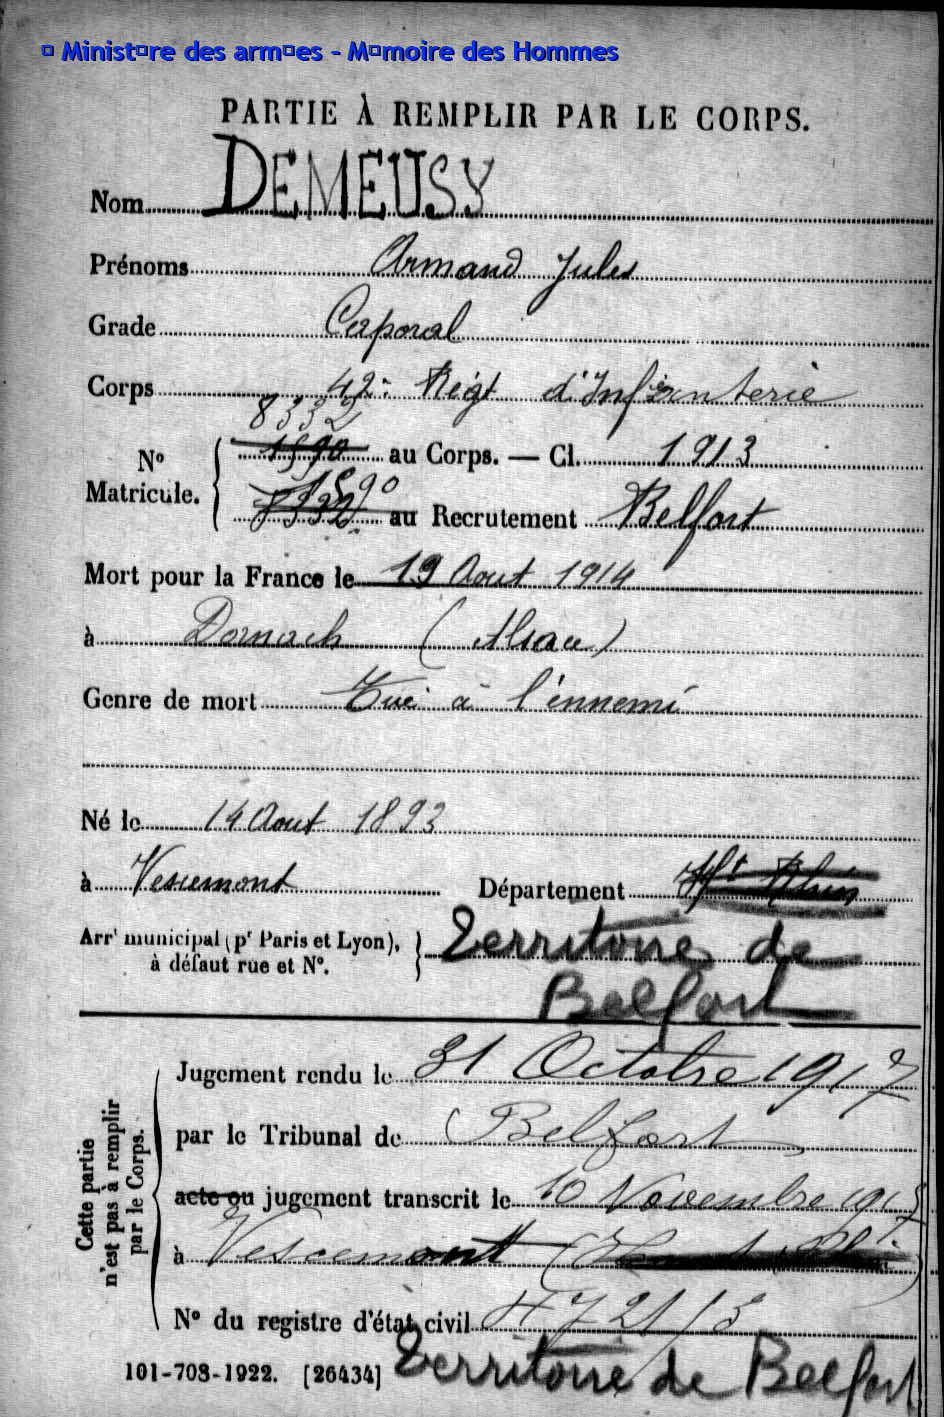 © Ministère des armées - Mémoire des Hommes
PARTIE À REMPLIR PAR LE CORPS.
Nom DEMEUSY
Prénoms Armand Jules
Grade Caporal
Corps 42e Régt d'Infanterie
8332
1590 au Corps. — Cl. 1913
N° Matricule.
1590
8332 au Recrutement Belfort
Mort pour la France le 19 Aout 1914
à Dornach (Alsace)
Genre de mort Tué à l'énnemi
Né le 14 Aout 1893
à Vescemont Département Ht Rhin
Arrt municipal (pr Paris et Lyon), à défaut rue et N°. Territoire de
Belfort
Cette partie n'est pas à remplir par le Corps.
Jugement rendu le 31 Octobre 1917
par le Tribunal de Belfort
acte ou jugement transcrit le 10 Novembre
à Vescemont
N° du registre d'état civil
Territoire de Belfort
101-708-1922. [26434]